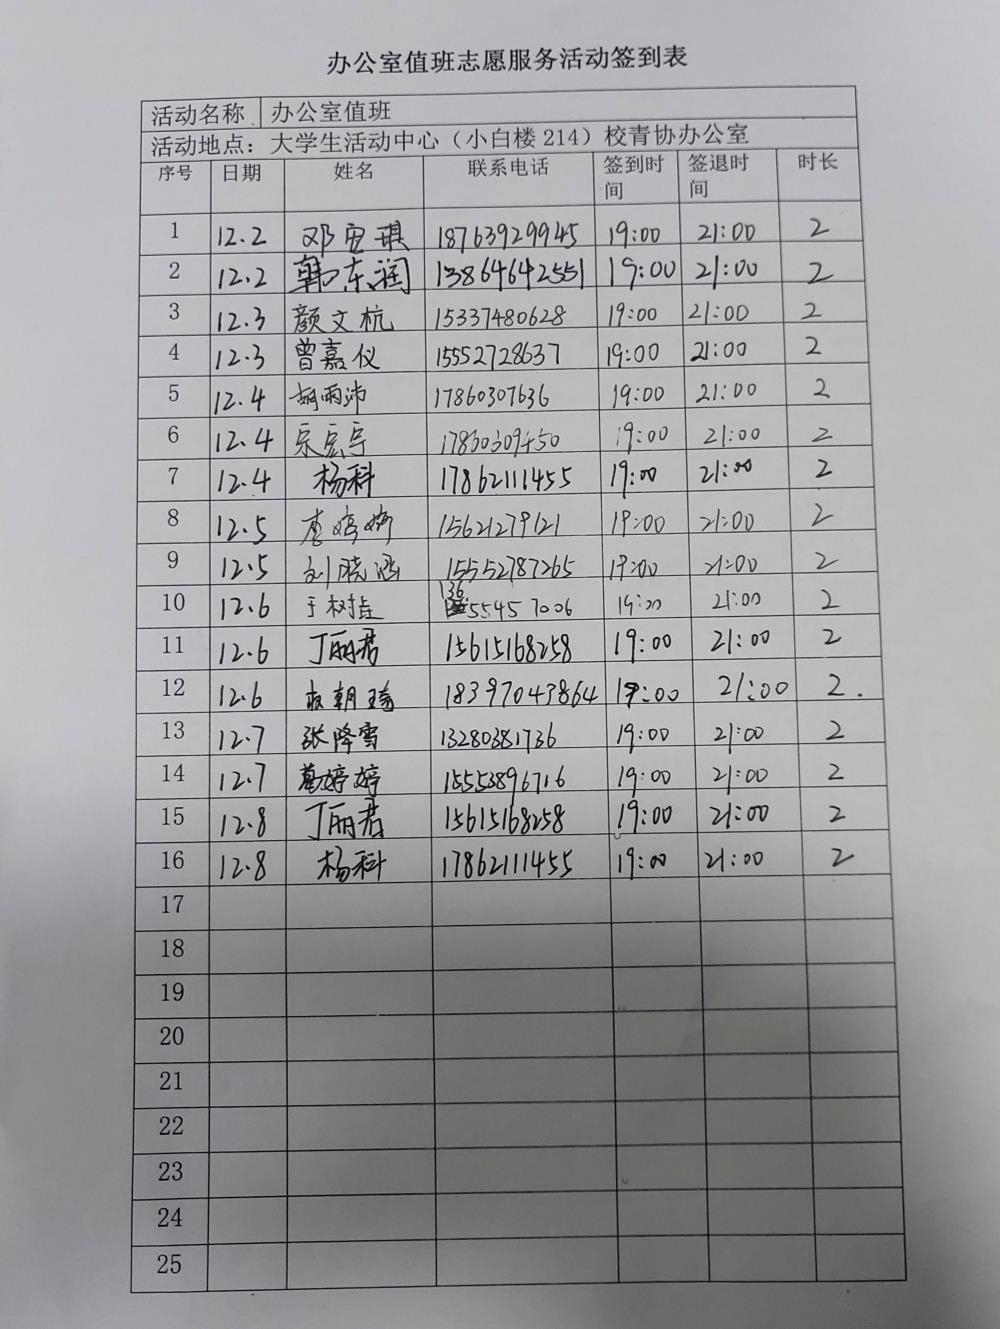 办公室值班志愿服务活动签到表
活动名称 办公室值班
活动地点：大学生活动中心（小白楼214）校青协办公室
序号 日期 姓名 联系电话 签到时间 签退时间 时长
1 12.2 邓宝琪 18763929945 19:00 21:00 2
2 12.2 韩东润 13864642551 19:00 21:00 2
3 12.3 颜文杭 15337480628 19:00 21:00 2
4 12.3 曾嘉仪 15552728637 19:00 21:00 2
5 12.4 胡雨沛 17860307636 19:00 21:00 2
6 12.4 宋宏宇 19:00 21:00 2
7 12.4 杨科 17862111455 19:00 21:00 2
8 12.5 李婷婷 15621279121 19:00 21:00 2
9 12.5 刘晓涵 15552787265 19:00 21:00 2
10 12.6 于树 13655457006 19:00 21:00 2
11 12.6 丁丽君 15615168258 19:00 21:00 2
12 12.6 朝瑞 18397043864 19:00 21:00 2.
13 12.7 张降雪 13280381736 19:00 21:00 2
14 12.7 葛婷婷 15553896716 19:00 21:00 2
15 12.8 丁丽君 15615168258 19:00 21:00 2
16 12.8 杨科 17862111455 19:00 21:00 2
17
18
19
20
21
22
23
24
25